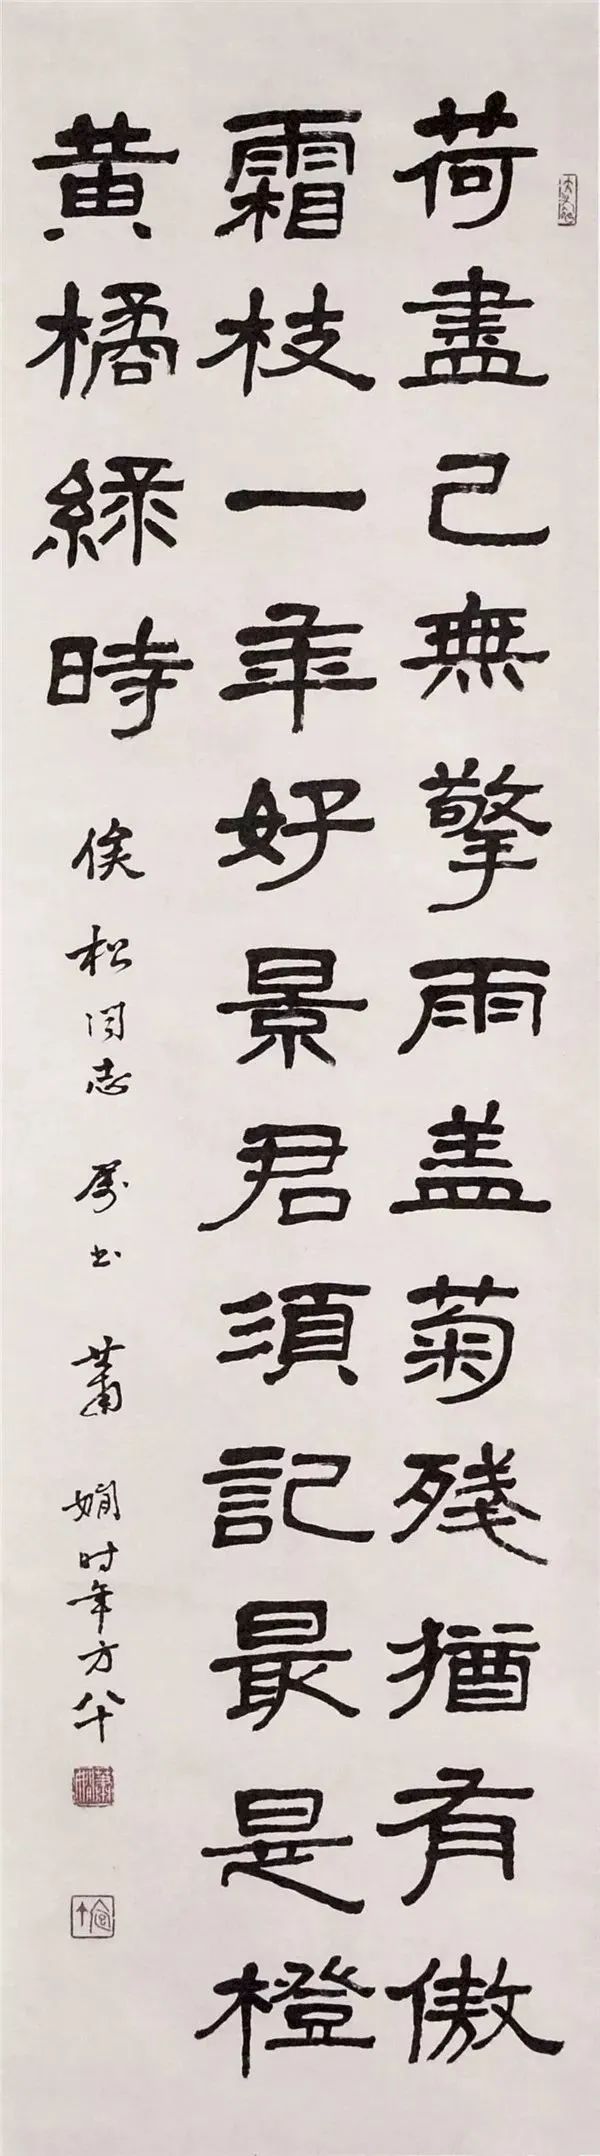 荷盡已無擎雨盖菊殘猶有傲
霜枝一年好景君須記最是橙
黃橘綠時
俟松同志 属书 蕭嫻时年方八十